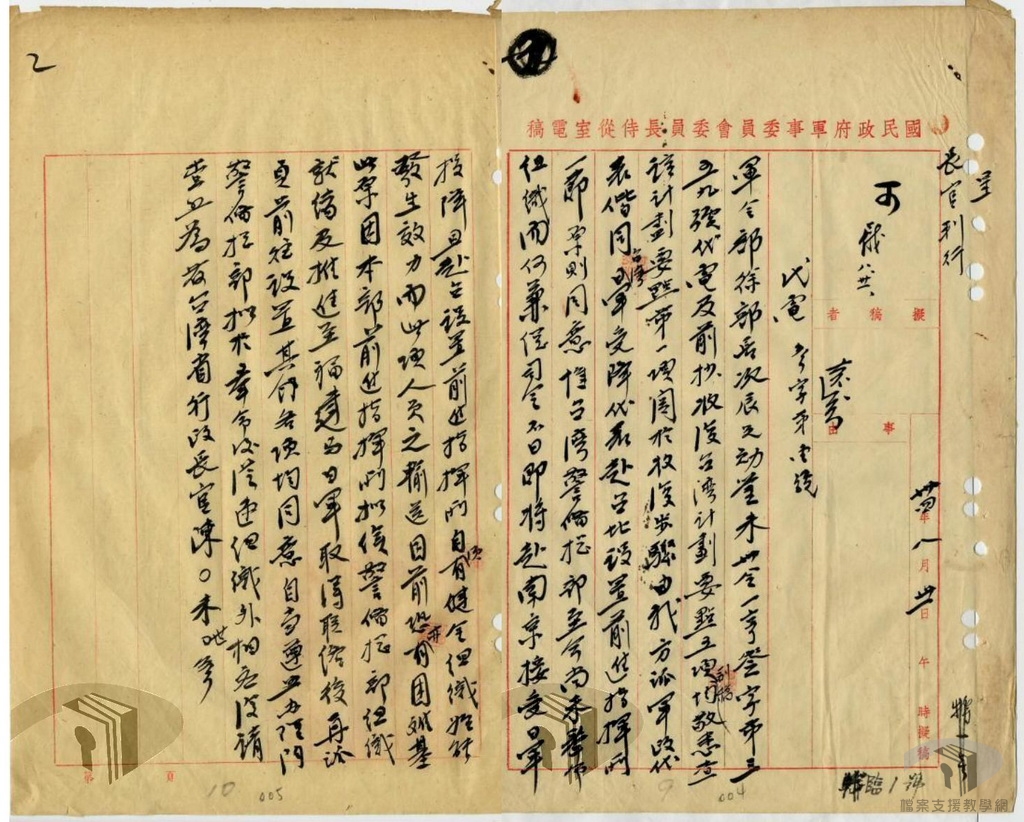 國民政府軍事委員會委員長侍從室電稿
呈
長官判行
可
擬稿者
事由
卅四年八月卅一日午時擬稿
代電
軍令部徐部長次辰兄勛鑒未卅令一亨發字第三
五九號代電及前抄收復台灣計劃要點五項均敬悉查
該計劃要點第一項關於收復步驟由我方派軍政代
表偕同台灣日軍受降代表赴台北設置前進指揮所
一節原則同意惟台灣警備總部至今尚未
組織而何兼總司令不日即將赴南京接受日軍
投降且赴台設置前進指揮所自須有健全組織始能
發生效力而此項人員之輸送目前恐亦有困難基
此原因本部前進指揮所擬俟警備總部組織
就緒及推進至福建與日軍取得聯絡後再派
員前往設置其餘各項均同意自當遵照辦理
警備總部擬於奉令後從速組織外相應復請
查照為荷台灣省行政長官陳○未世
臨1號
9
004
2
第頁
10
005
檔案支援教學網